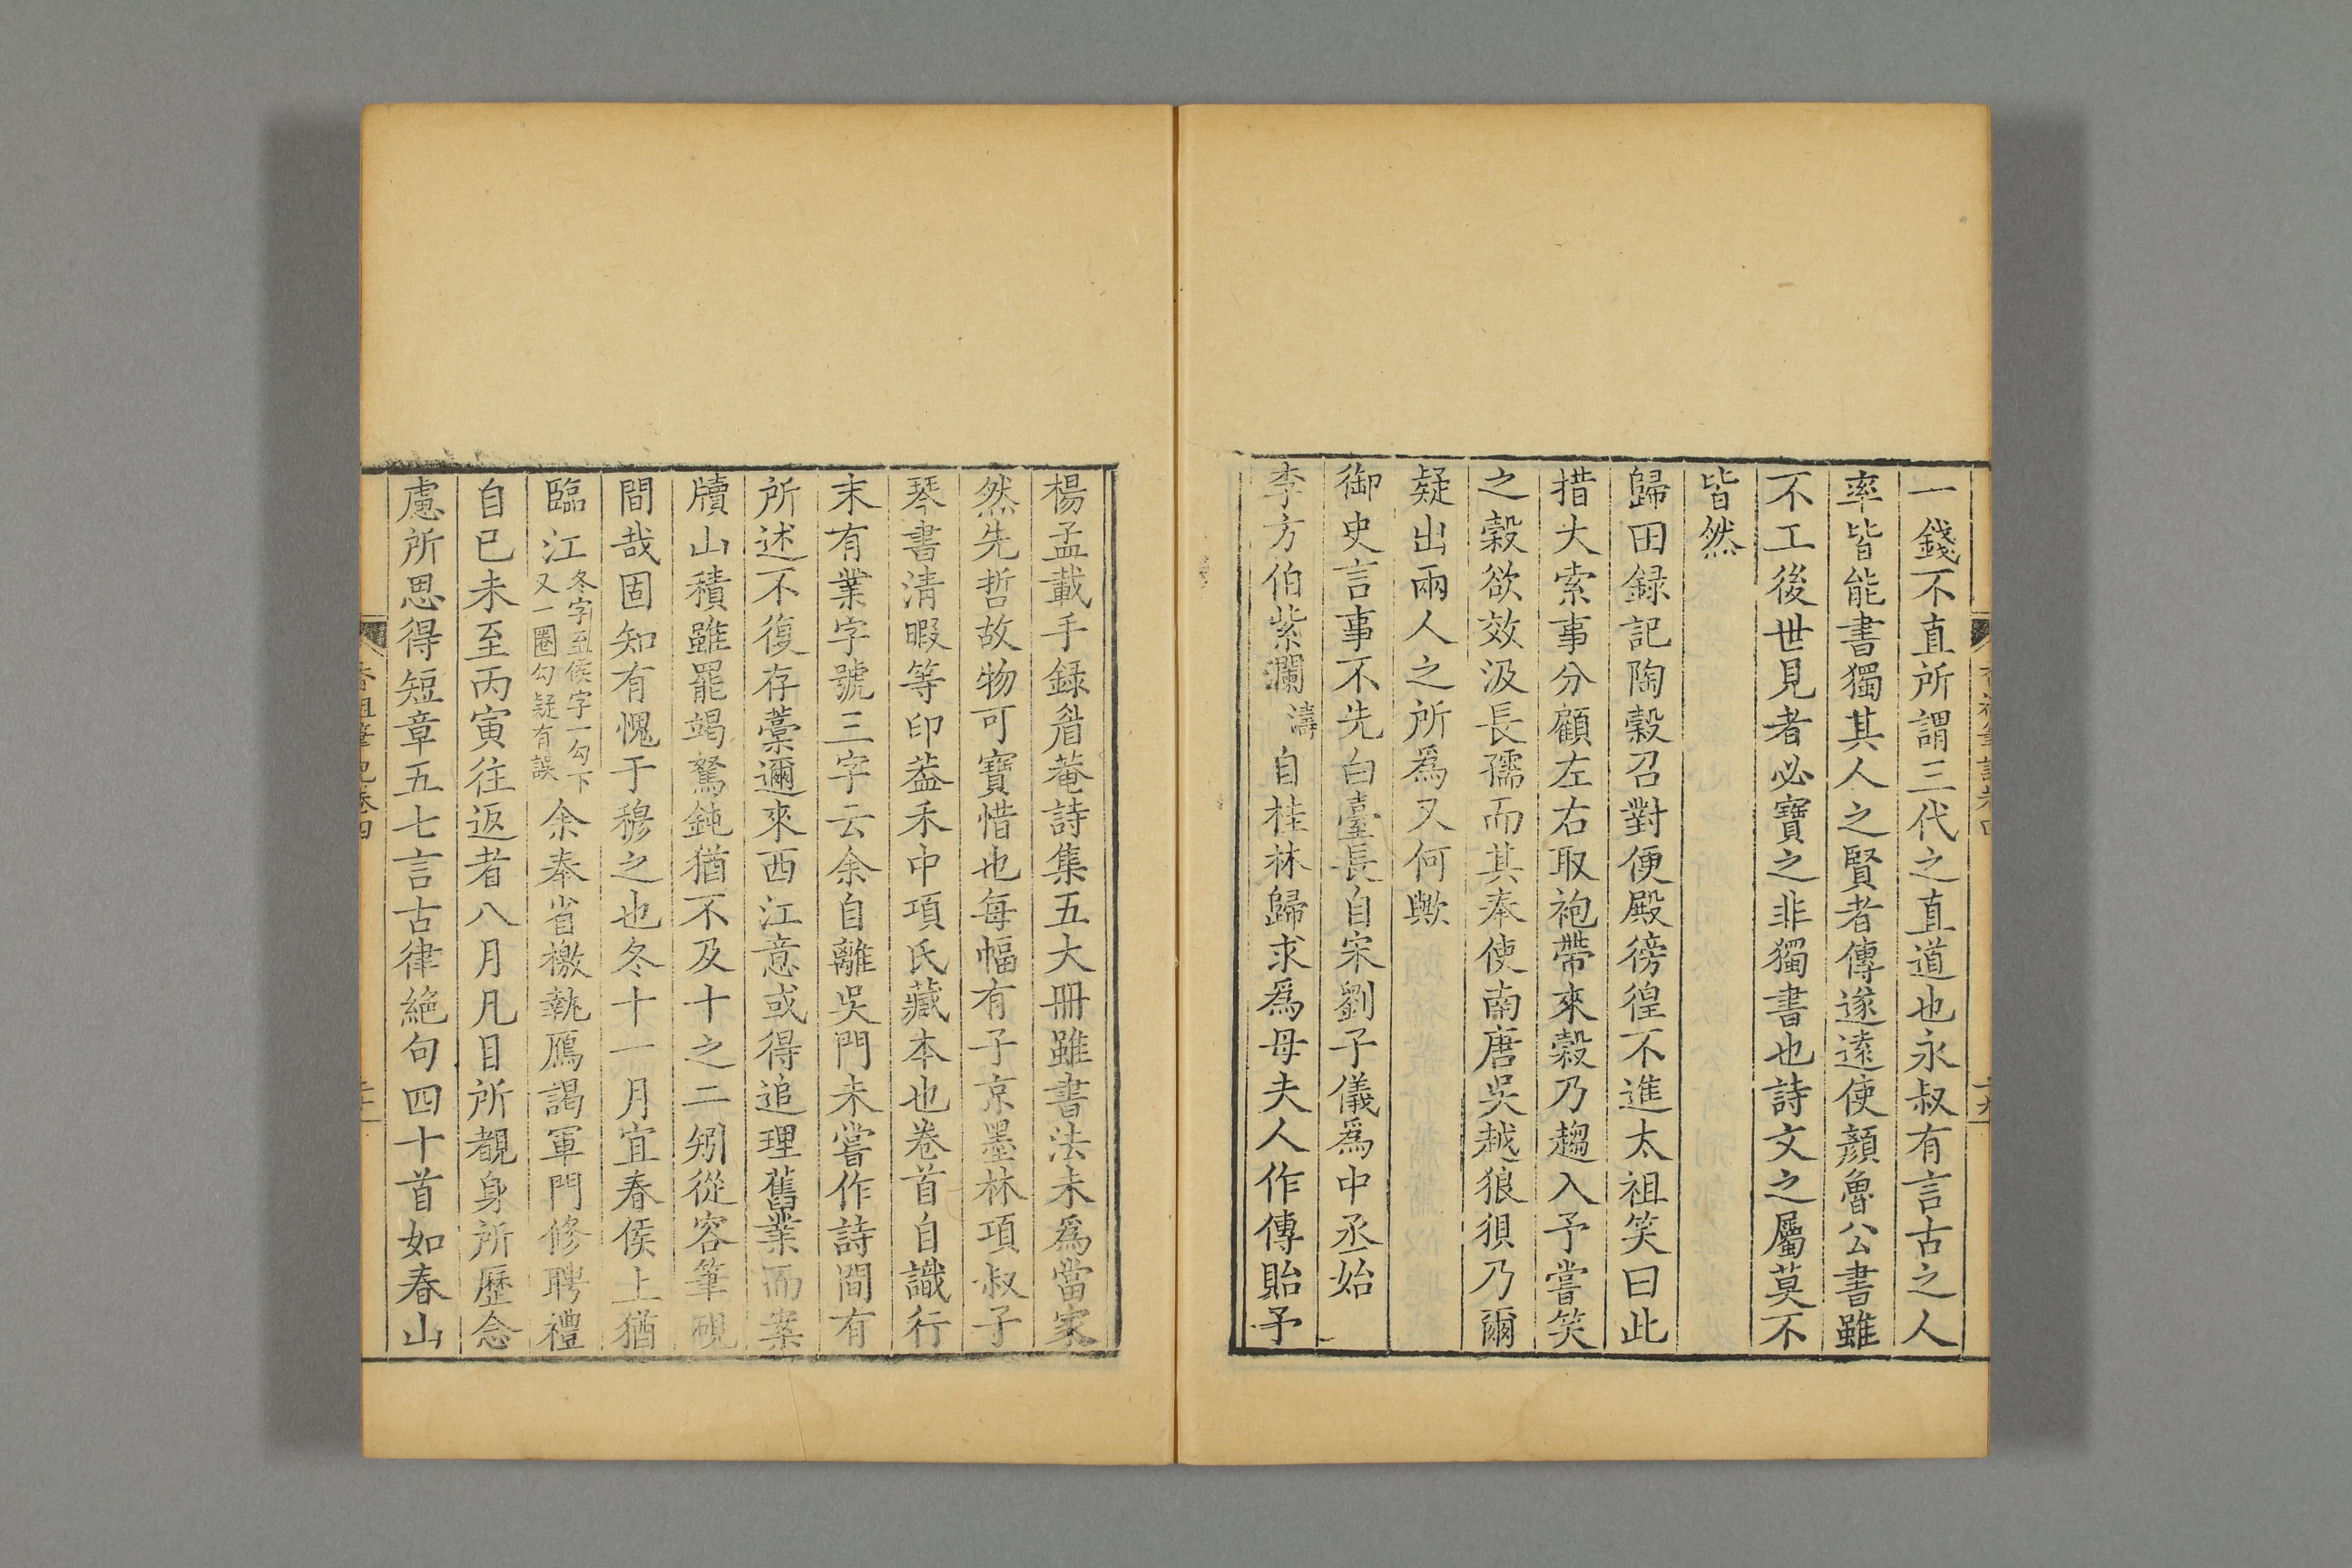 一錢不直所謂三代之直道也永叔有言古之人
率皆能書獨其人之賢者傳遂遠使顔魯公書雖
不工後世見者必寶之非獨書也詩文之屬莫不
皆然
歸田録記陶穀召對便殿徬徨不進太祖笑曰此
措大索事分顧左右取袍帶來穀乃趨入予嘗笑
之穀欲效汲長孺而其奉使南唐吳越狼狽乃爾
疑出兩人之所爲又何歟
御史言事不先白臺長自宋劉子儀爲中丞始
李方伯紫瀾濤自桂林歸求爲母夫人作傳貽予
楊孟載手録眉菴詩集五大冊雖書法未爲當家
然先哲故物可寶惜也每幅有子京墨林項叔子
琴書清暇等印葢禾中項氏藏本也卷首自識行
末有業字號三字云余自離吳門未嘗作詩間有
所述不復存藁邇來西江意或得追理舊業而案
牘山積雖罷竭駑鈍猶不及十之二矧從容筆硯
間哉固知有愧于穆之也冬十一月宜春侯上猶
臨江冬字至侯字一勾下又一圈勾疑有誤余奉省檄執鴈謁軍門修聘禮
自已未至丙寅往返者八月凡目所覩身所歷念
慮所思得短章五七言古律絕句四十首如春山
香祖筆記卷四